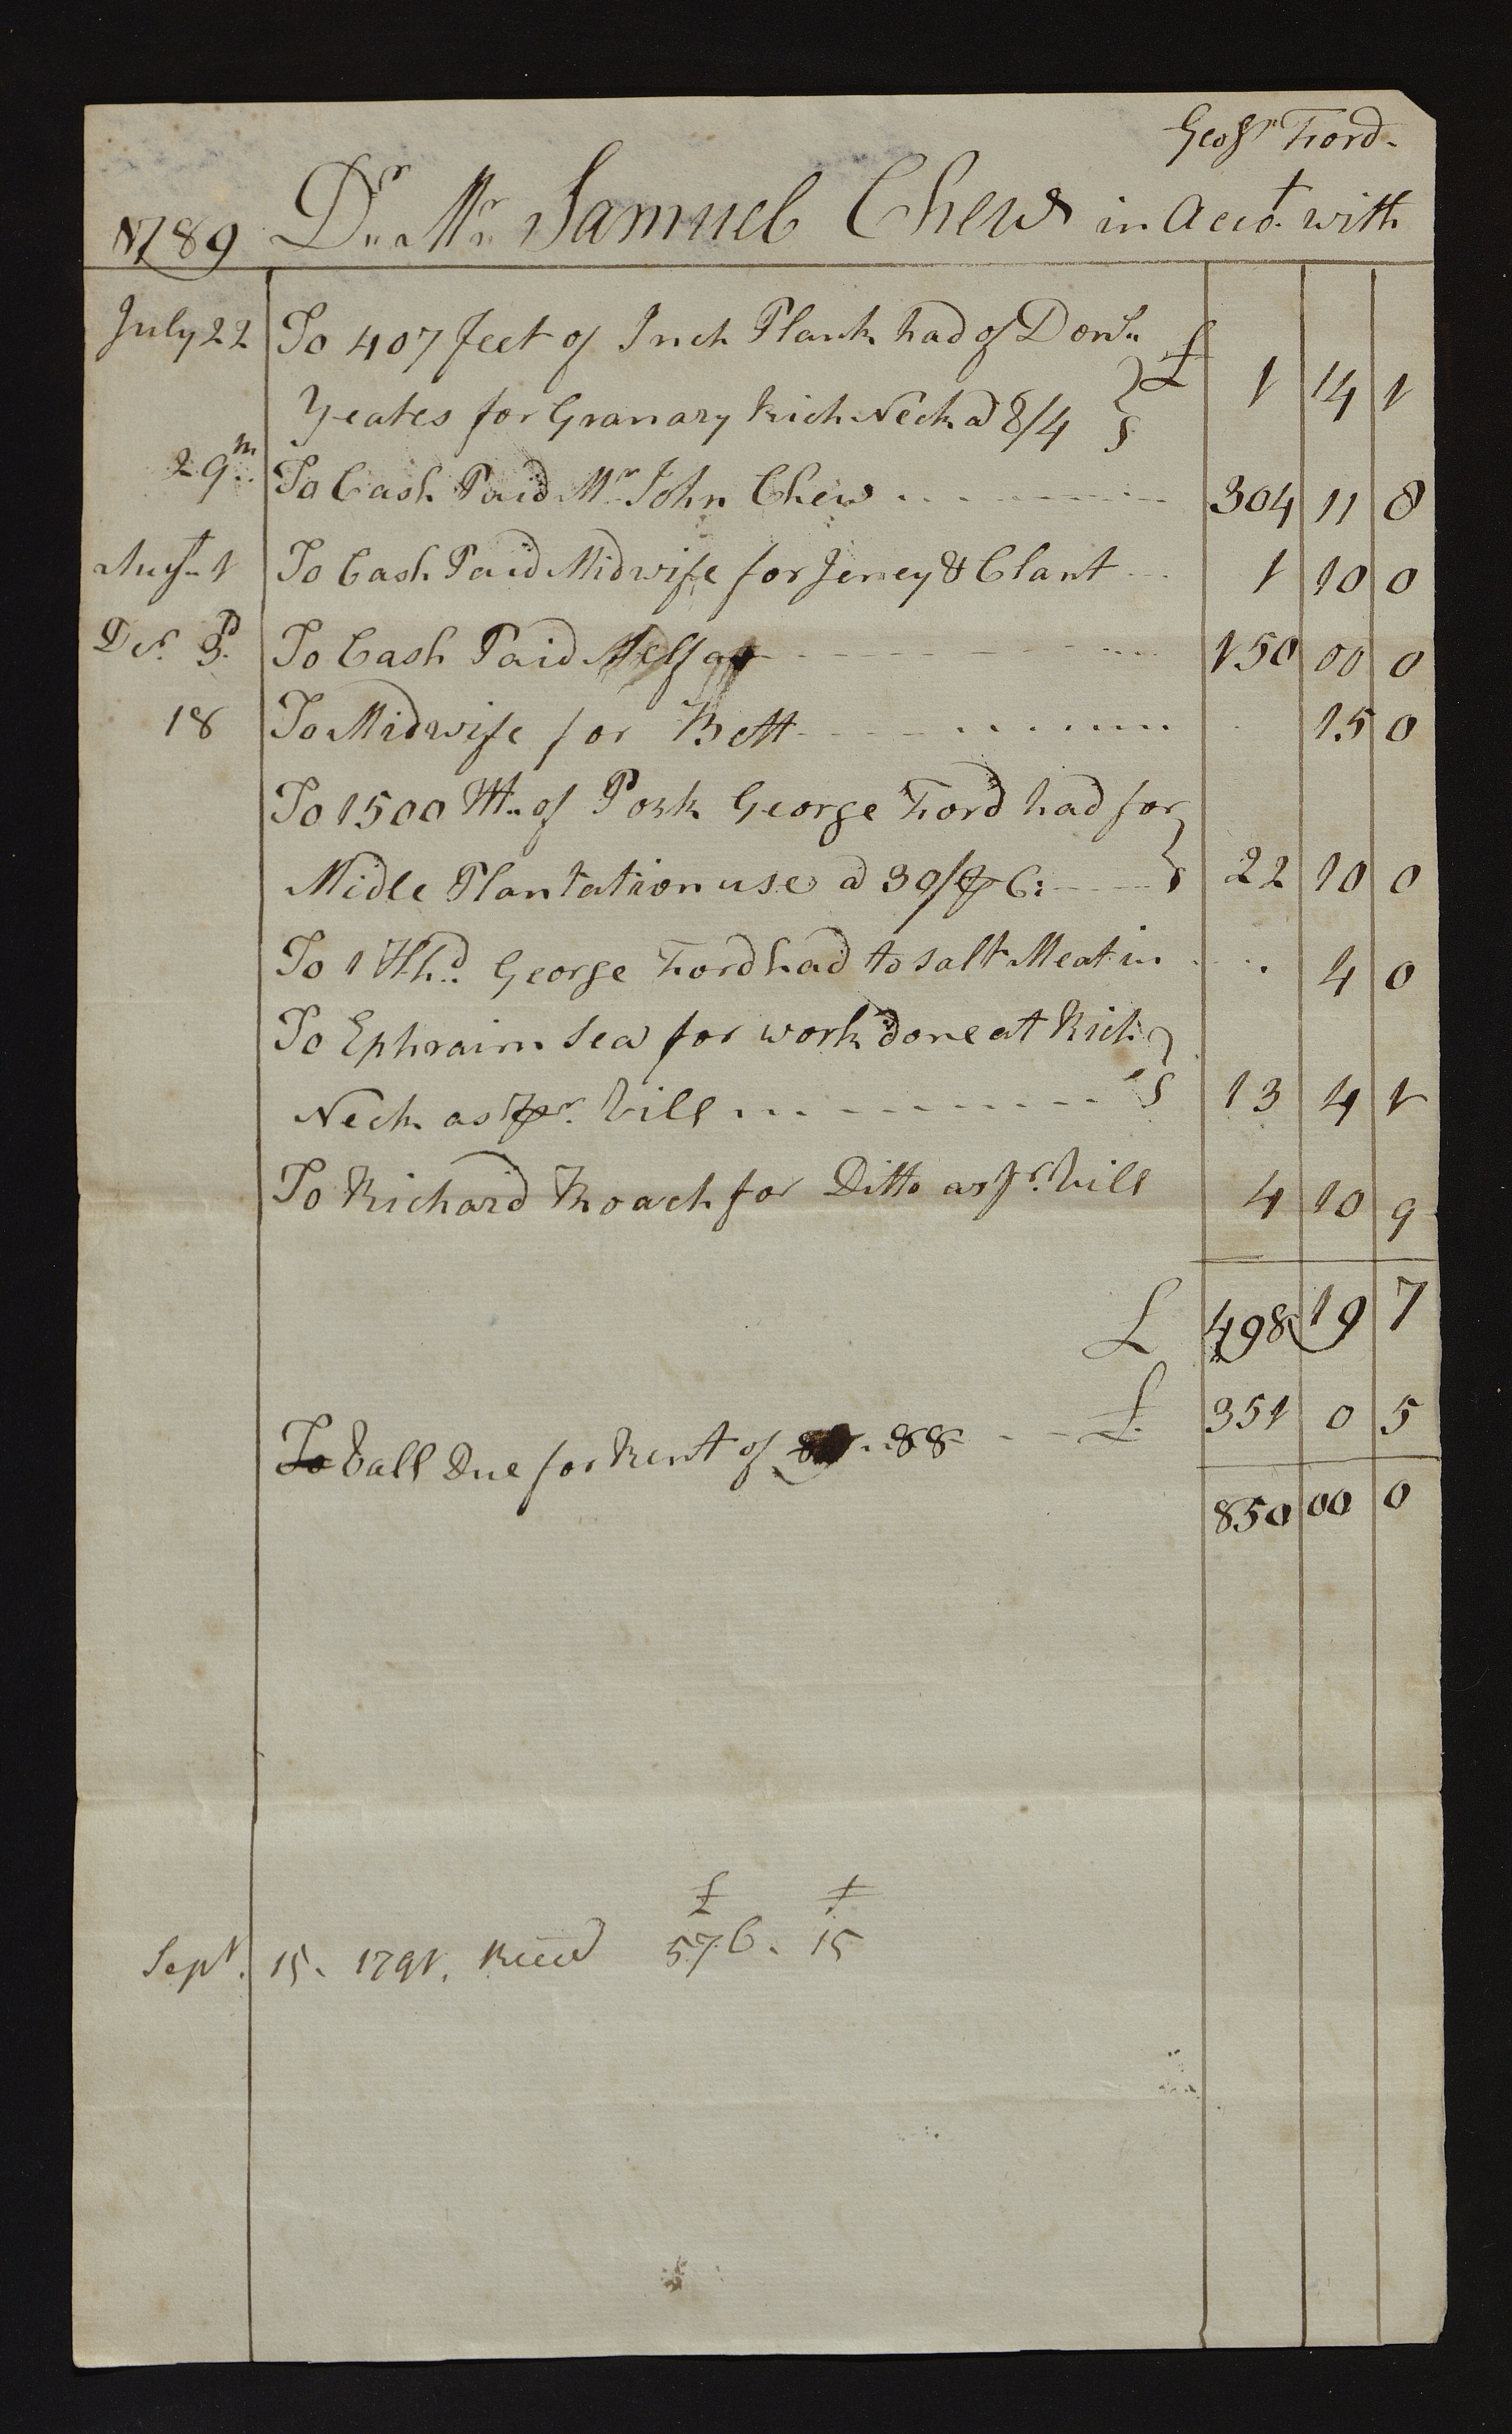 Geo Ford.
1789 Dr. Mr. Samuel Chew in Acct. with
July 22 To 407 feet of Inch Plank had of Donn.
Yeates for Granary Rich Neck a 8/4 } £ 1 14 1
29th To Cash Paid Mr. John Chew 304 11 8
Augt. 1 To Cash Paid Midwife for Jenney & Clant 1 10 0
Der. 3d. To Cash Paid 150 00 0
18 To Midwife for Bett 15 0
To 1500 Wt. of Pork George Ford had for
Midle Plantation use a 30/ ⅌ C: } 22 10 0
To 1 Hhd. George Ford had to salt Meat in 4 0
To Ephraim Sea for work done at Rich
Neck as pr. bill } 13 4 1
To Richard Roach for Ditto as pr. bill 4 10 9
£ 498 19 7
To ball Due for Rent of 88 £ 351 0 5
850 00 0
£
Sept. 15. 1791. Reced 576. 15